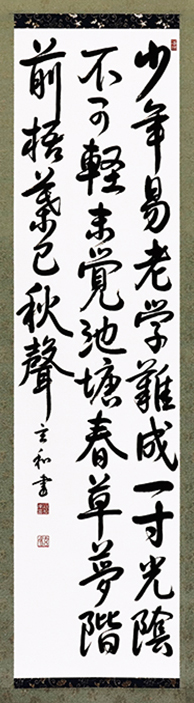 少年易老学難成一寸光陰
不可軽未覚池塘春草夢階
前梧葉已秋聲
玄和書